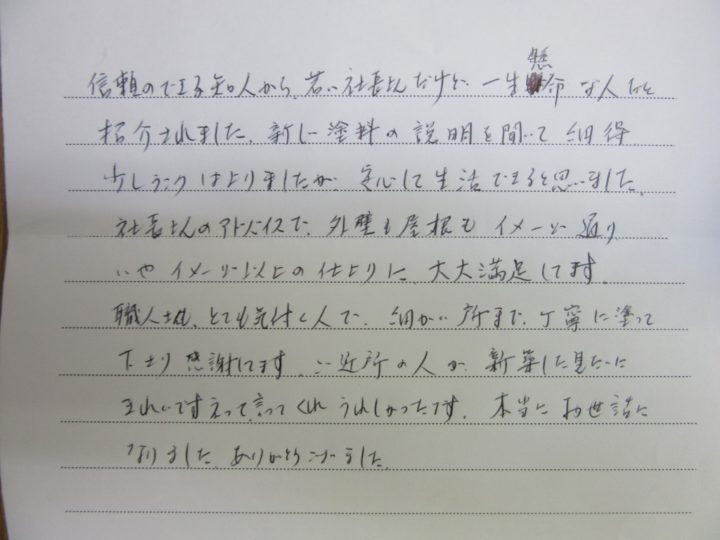 信頼のできる知人から、若い社長さんだけど、一生懸命な人だと
紹介されました。新しい塗料の説明を聞いて納得
少しランクは上りましたが、安心して生活できると思いました。
社長さんのアドバイスで、外壁も屋根もイメージ通り
いやイメージ以上の仕上りに、大大満足してます。
職人さんも、とても気付く人で、細かい所まで、丁寧に塗って
下さり感謝してます。ご近所の人が、新築した見たいに
きれいですネって言ってくれうれしかったです。本当にお世話に
なりました。ありがとうございました。